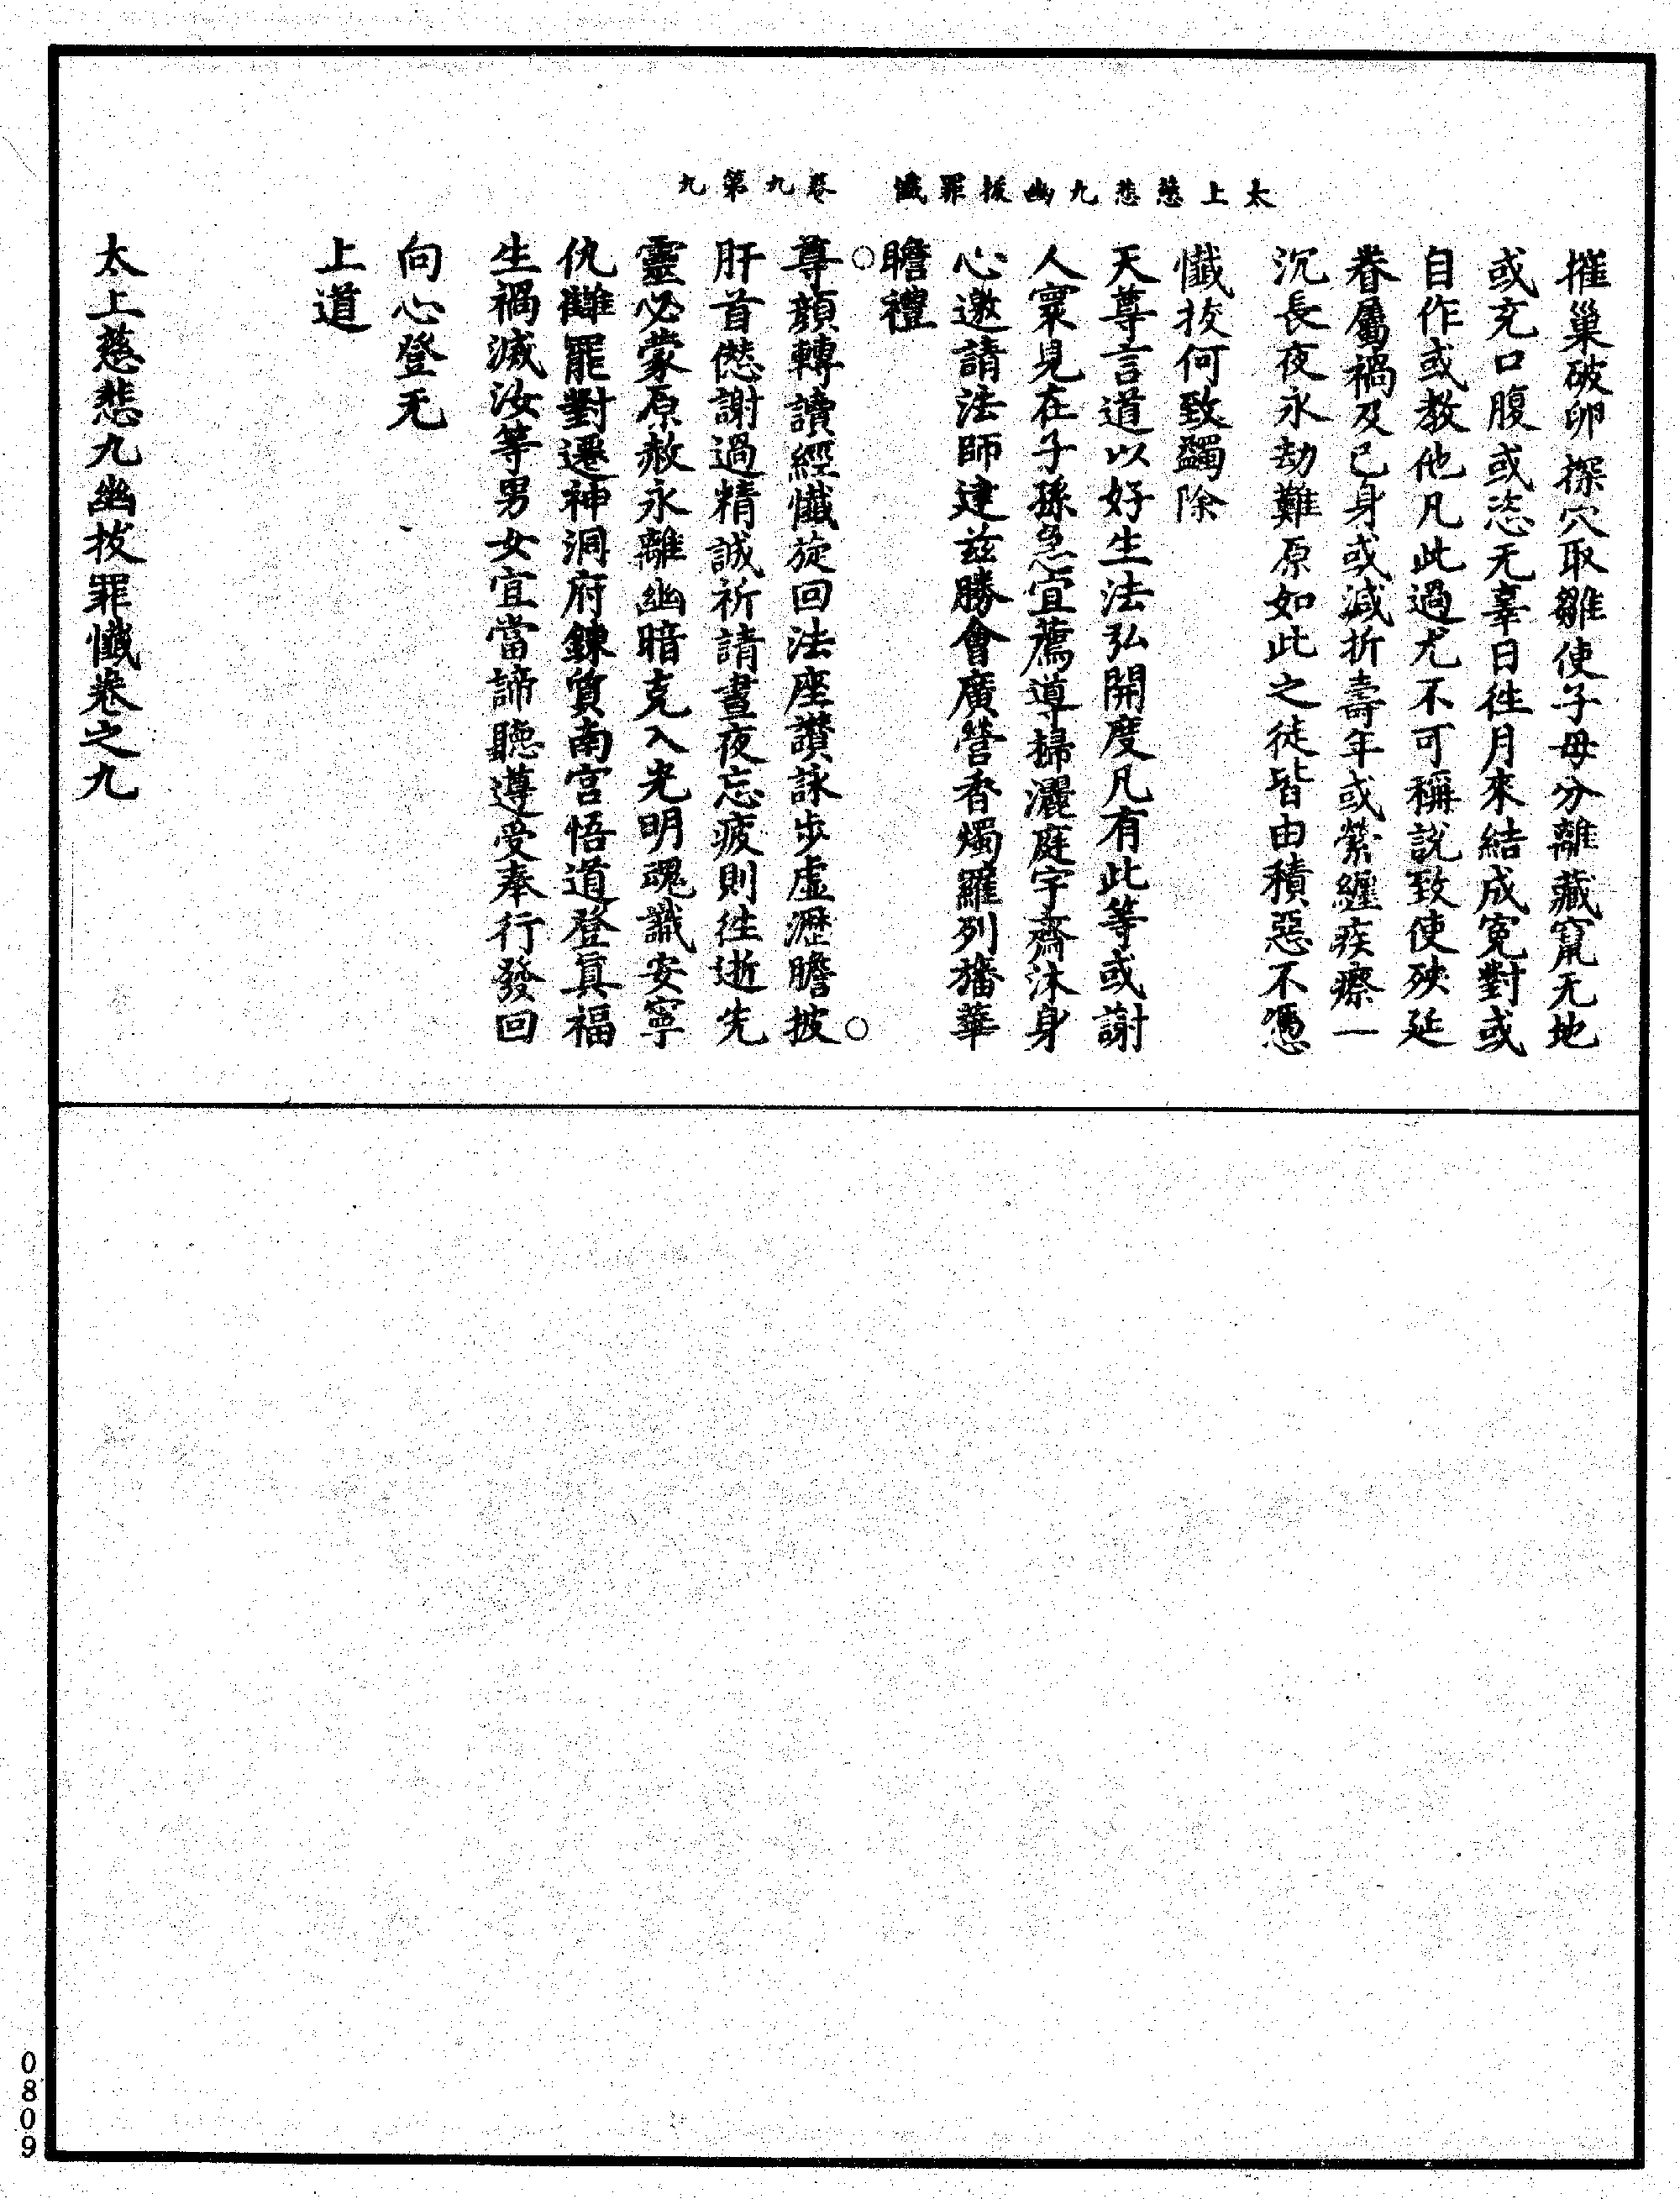 太上慈悲九幽拔罪懺　卷九第九
摧巢破卵探穴取雛使子母分離藏竄无地
或充口腹或恣无辜日往月來結成冤對或
自作或教他凡此過尤不可稱說致使殃延
眷屬禍及己身或減折壽年或縈纏疾瘵一
沉長夜永劫難原如此之徒皆由積惡不憑
懺拔何致蠲除
天尊言道以好生法弘開度凡有此等或謝
人寰見在子孫急宜薦導掃灑庭宇齋沐身
心邀請法師建茲勝會廣營香燭羅列旛華
瞻禮
○尊顏轉讀經懺旋回法座讚詠步虛瀝膽披○
肝首愆謝過精誠祈請晝夜忘疲則往逝先
靈必蒙原赦永離幽暗克入光明魂識安寧
仇讎罷對遷神洞府鍊質南宮悟道登真福
生禍滅汝等男女宜當諦聽遵受奉行發回
向心登无
上道
太上慈悲九幽拔罪懺卷之九
0809